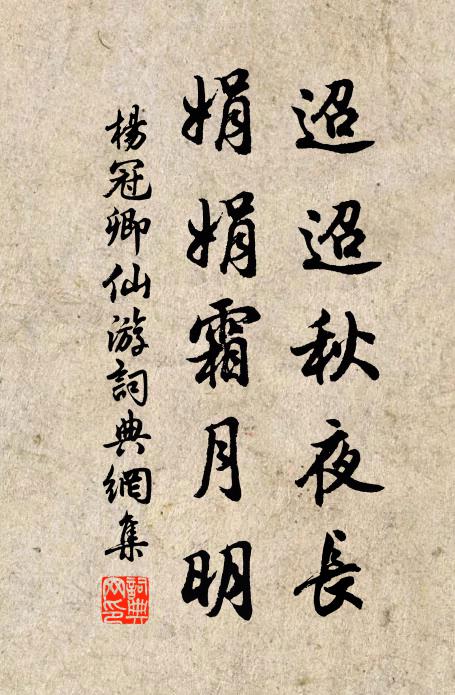 迢迢秋夜長
娟娟霜月明
楊冠卿仙游詞典網集
詞典網印